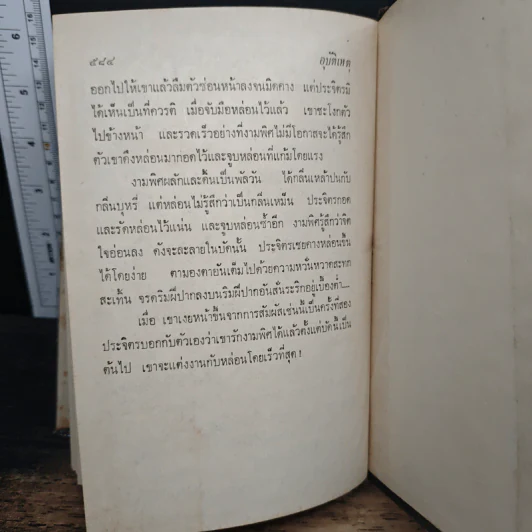 ๕๘๔ อุบัติเหตุ
ออกไปให้เขาแล้วลืมตัวซ่อนหน้าลงจนมิดคาง แต่ประจิตรมิ
ได้เห็นเป็นที่ควรติ เมื่อจับมือหล่อนไว้แล้ว เขาชะโงกตัว
ไปข้างหน้า และรวดเร็วอย่างที่งามพิศไม่มีโอกาสจะได้รู้สึก
ตัวเขาดึงหล่อนมากอดไว้และจูบหล่อนที่แก้มโดยแรง
งามพิศผลักและดิ้นเป็นพัลวัน ได้กลิ่นเหล้าปนกับ
กลิ่นบุหรี่ แต่หล่อนไม่รู้สึกว่าเป็นกลิ่นเหม็น ประจิตรกอด
และรัดหล่อนไว้แน่น และจูบหล่อนซ้ำอีก งามพิศรู้สึกว่าจิต
ใจอ่อนลง ดังจะละลายในบัดนั้น ประจิตรเชยคางหล่อนขึ้น
ได้โดยง่าย ตามองตาอันเต็มไปด้วยความหวั่นหวาดสะทก
สะเทิ้น จรดริมฝีปากลงบนริมฝีปากอันสั่นระริกอยู่เบื้องต่ำ—
เมื่อ เขาเงยหน้าขึ้นจากการสัมผัสเช่นนี้เป็นครั้งที่สอง
ประจิตรบอกกับตัวเองว่าเขารักงามพิศได้แล้วตั้งแต่บัดนี้เป็น
ต้นไป เขาจะแต่งงานกับหล่อนโดยเร็วที่สุด !
2
3
4
5
6